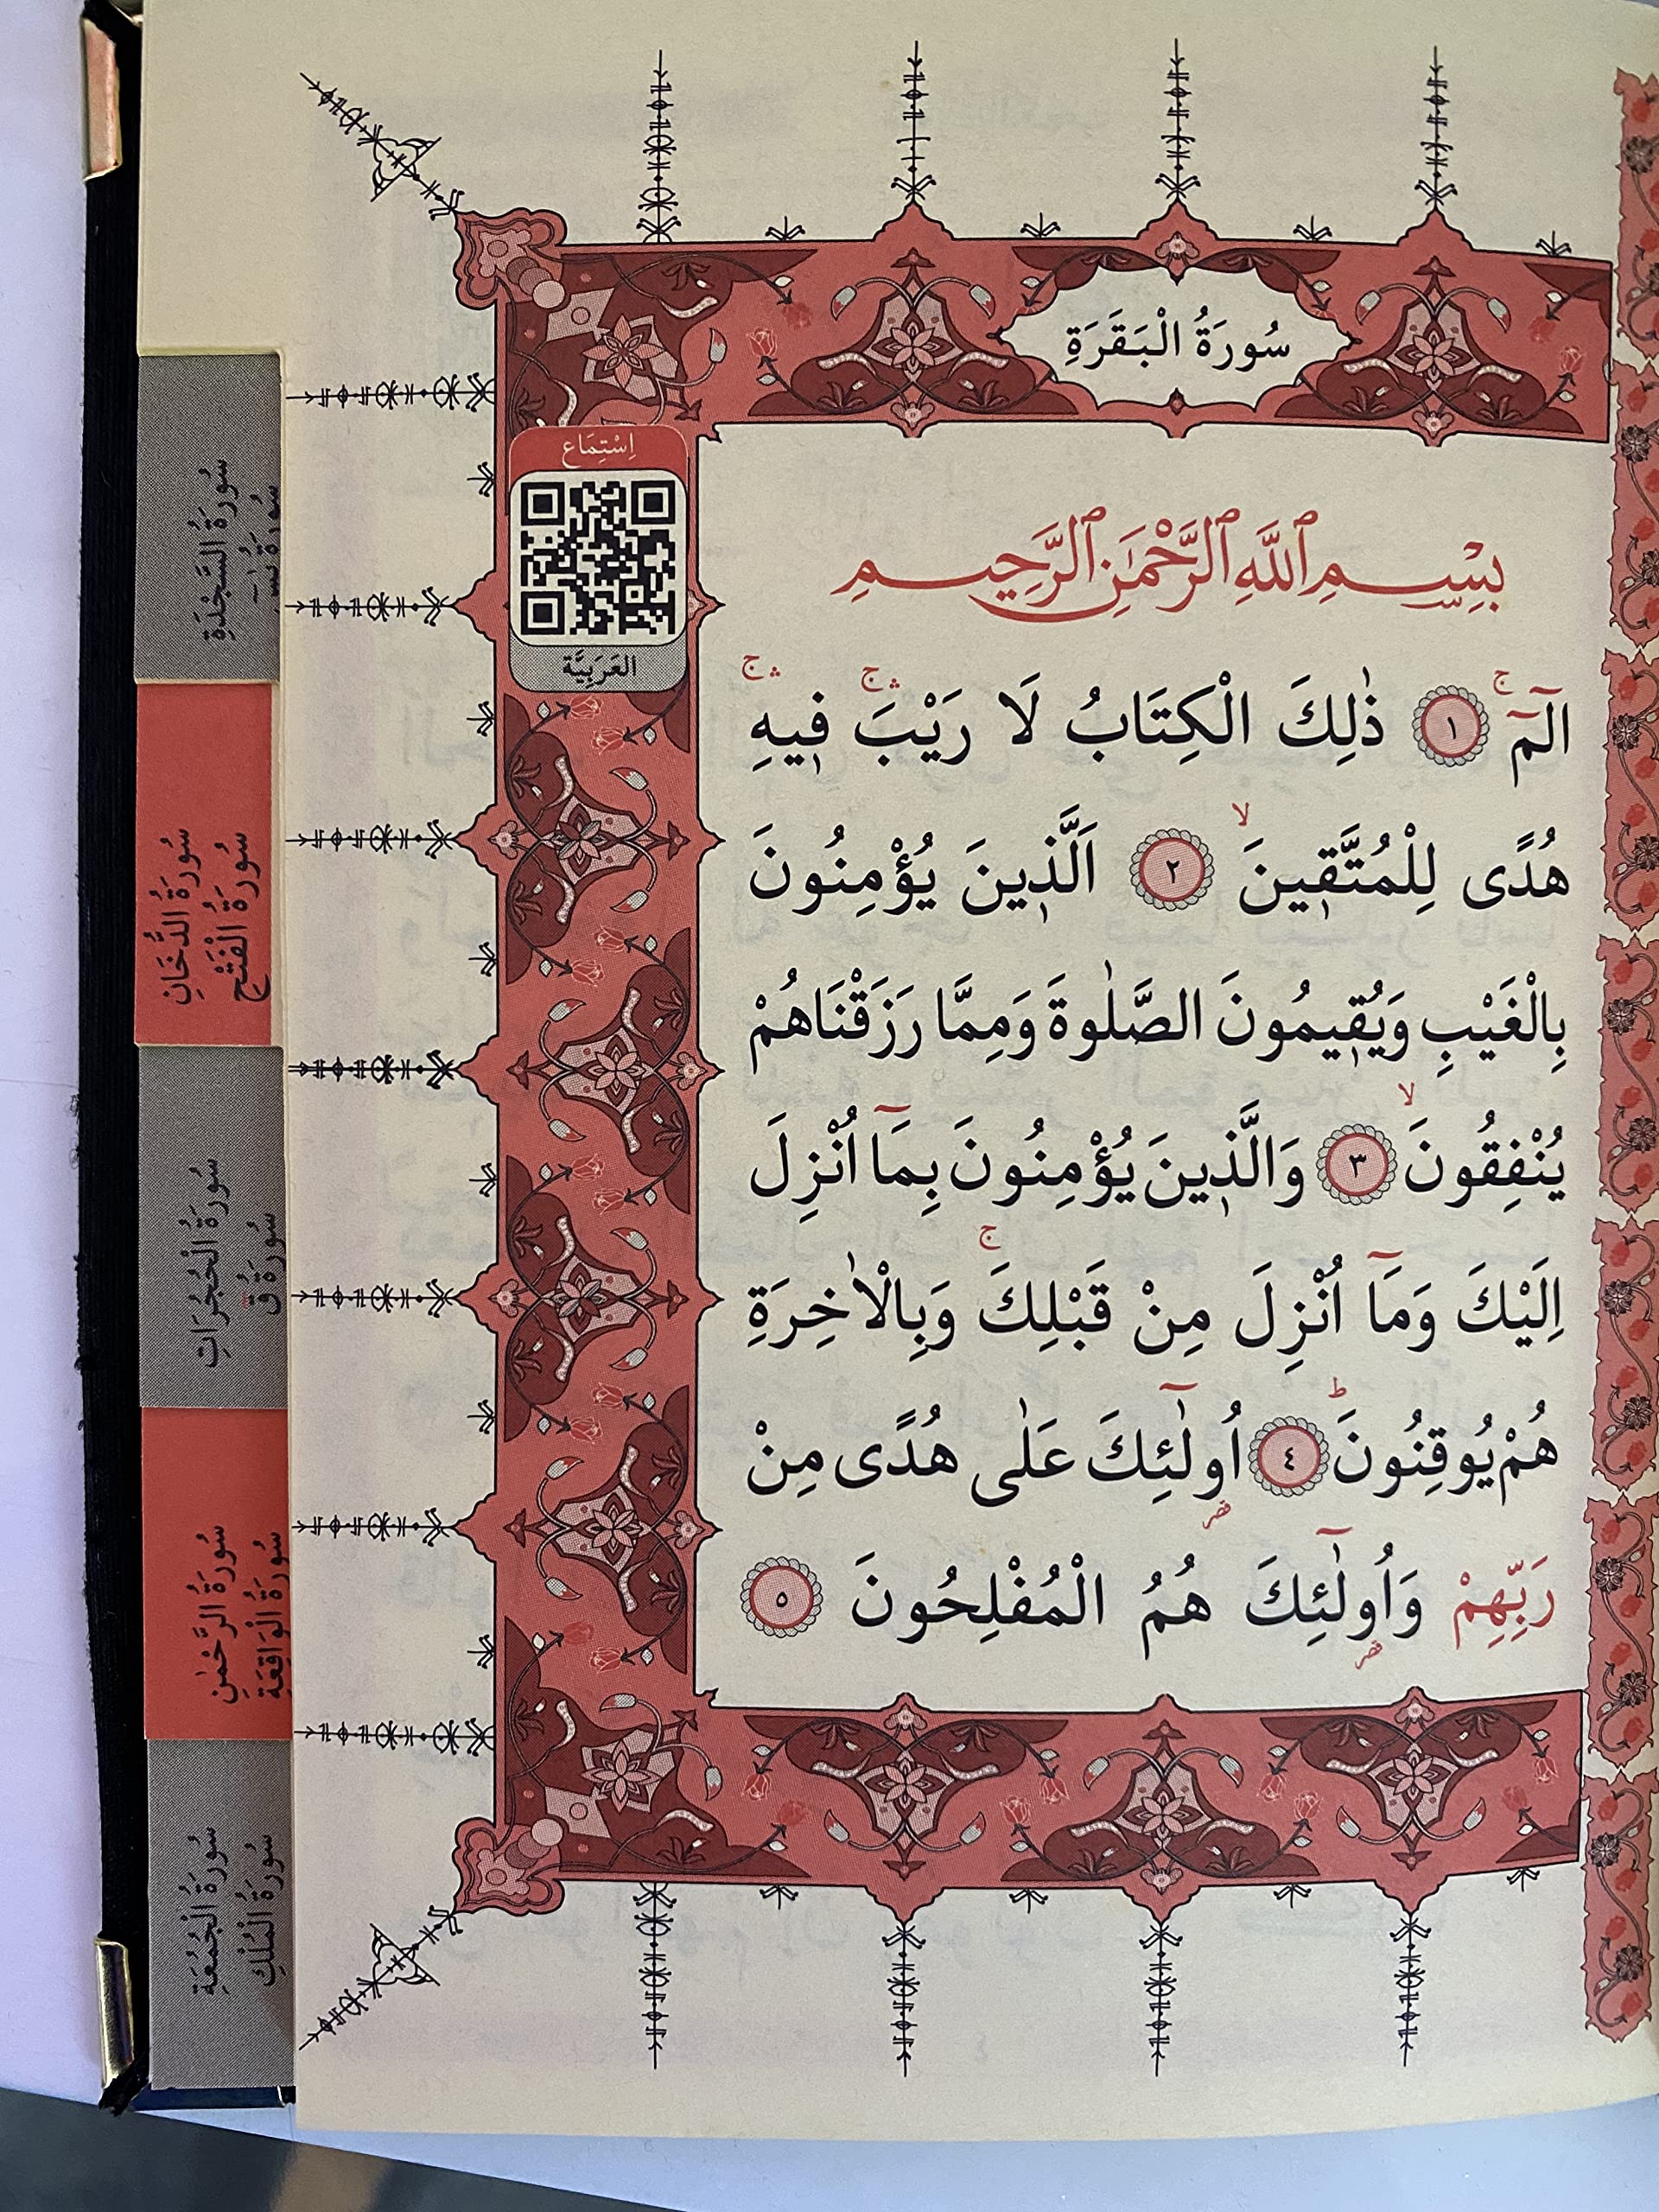 سُورَةُ الْبَقَرَةِ
اِسْتِمَاع
العَرَبِيَّة
بِسْمِ ٱللَّهِ ٱلرَّحْمَٰنِ ٱلرَّحِيمِ
الٓمٓ ۚ ﴿١﴾ ذٰلِكَ الْكِتَابُ لَا رَيْبَ ۛۚ ف۪يهِ ۛۚ
هُدًى لِلْمُتَّق۪ينَ ۙ ﴿٢﴾ اَلَّذ۪ينَ يُؤْمِنُونَ
بِالْغَيْبِ وَيُق۪يمُونَ الصَّلٰوةَ وَمِمَّا رَزَقْنَاهُمْ
يُنْفِقُونَ ۙ ﴿٣﴾ وَالَّذ۪ينَ يُؤْمِنُونَ بِمَٓا اُنْزِلَ
اِلَيْكَ وَمَٓا اُنْزِلَ مِنْ قَبْلِكَ ۚ وَبِالْاٰخِرَةِ
هُمْ يُوقِنُونَ ؕ ﴿٤﴾ اُو۬لٰٓئِكَ عَلٰى هُدًى مِنْ
رَبِّهِمْ وَاُو۬لٰٓئِكَ هُمُ الْمُفْلِحُونَ ﴿٥﴾
سُورَةُ السَّجْدَةِ
سُورَةُ يٰسٓ
سُورَةُ الدُّخَانِ
سُورَةُ الْفَتْحِ
سُورَةُ الْحُجُرَاتِ
سُورَةُ قٓ
سُورَةُ الرَّحْمٰنِ
سُورَةُ الْوَاقِعَةِ
سُورَةُ الْجُمُعَةِ
سُورَةُ الْمُلْكِ